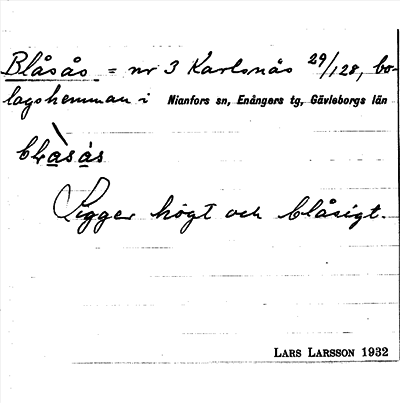 Blåsås = nr 3 Karlsnås 29/128, bo-
lagshemman i Nianfors sn, Enångers tg, Gävleborgs län
blàsås
Ligger högt och blåsigt.
LARS LARSSON 1932